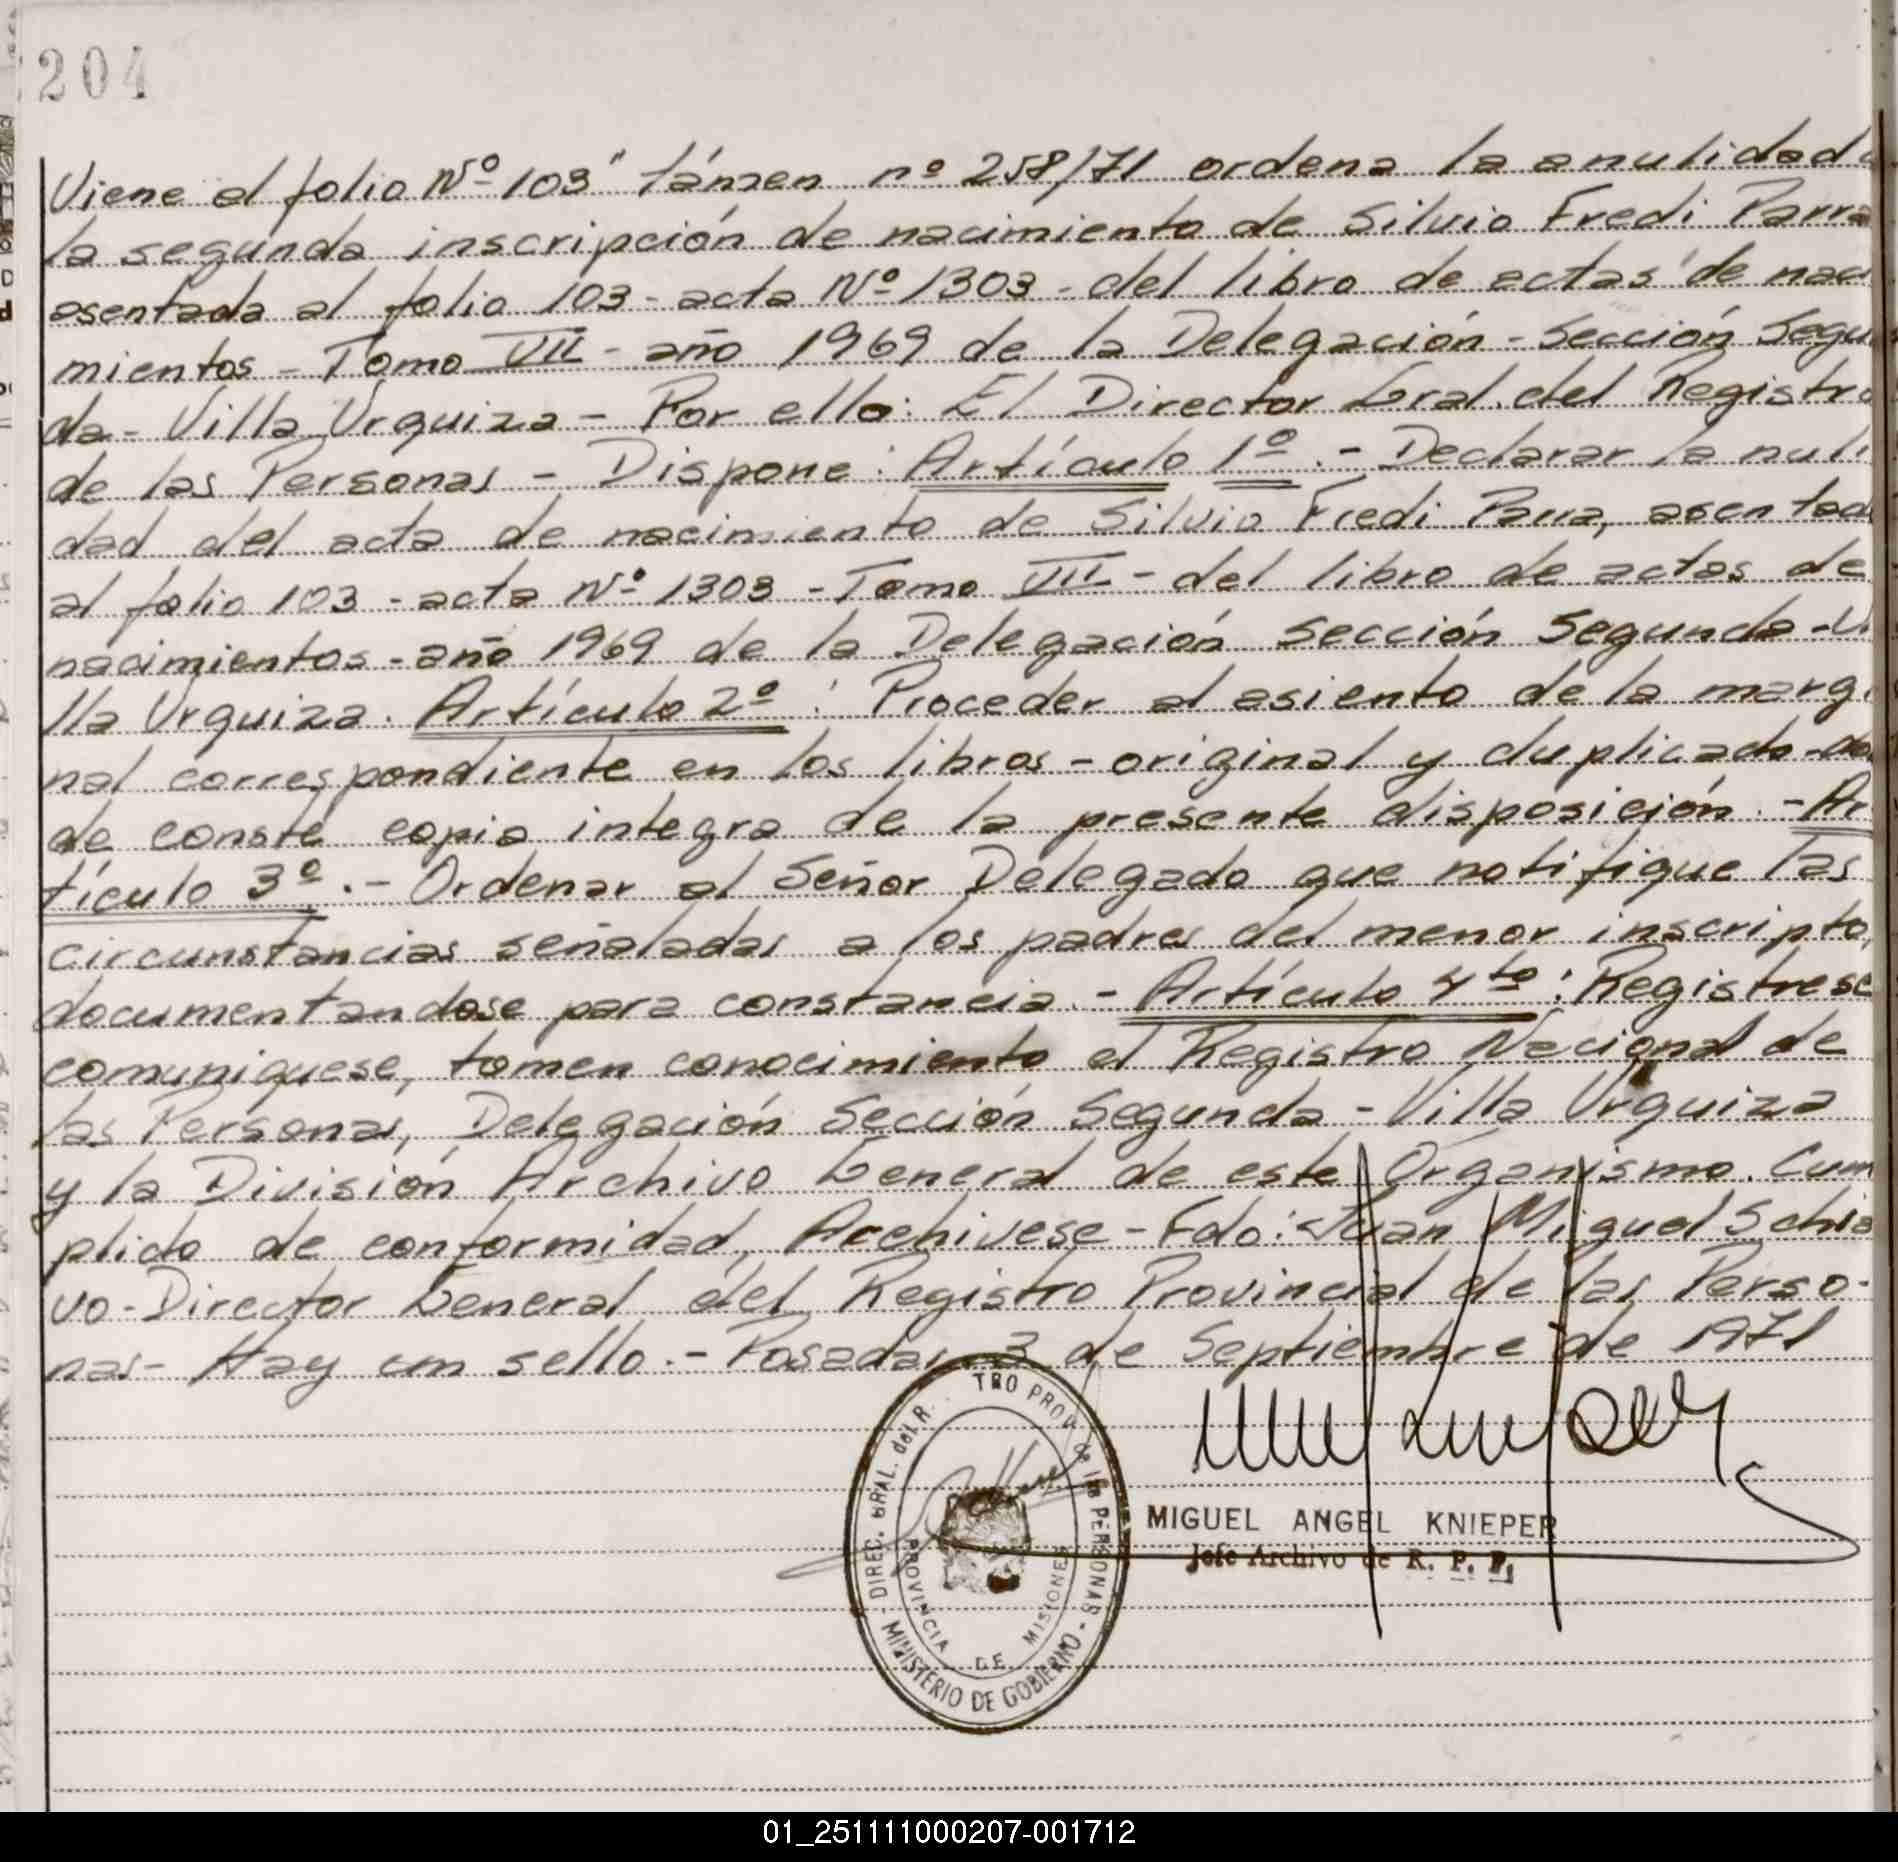 204
Viene al folio Nº 103" támen nº 258/71 ordena la anulidad d
la segunda inscripción de nacimiento de Silvio Fredi Parra
asentada al folio 103 - acta Nº 1303 - del libro de actas de naci
mientos - Tomo VII - año 1969 de la Delegación - Sección Segun
da - Villa Urquiza - Por ello: El Director Gral. del Registro
de las Personas - Dispone: Artículo 1º.- Declarar la nuli
dad del acta de nacimiento de Silvio Fredi Parra, asentada
al folio 103 - acta Nº 1303 - Tomo VII - del libro de actas de
nacimientos - año 1969 de la Delegación Sección Segunda - Vi
lla Urquiza. Artículo 2º: Proceder al asiento de la margi
nal correspondiente en los libros - original y duplicado - don
de conste copia integra de la presente disposición. - Ar
tículo 3º.- Ordenar al Señor Delegado que notifique las
circunstancias señaladas a los padres del menor inscripto,
documentandose para constancia. - Artículo 4to: Registrese
comuniquese, tomen conocimiento el Registro Nacional de
las Personas, Delegación Sección Segunda - Villa Urquiza
y la División Archivo General de este Organismo. Cum
plido de conformidad, Archivese - Fdo: Juan Miguel Schia
vo - Director General del Registro Provincial de las Perso-
nas - Hay un sello. - Posadas, 3 de Septiembre de 1971
DIREC. GRAL. del R. TRO PROV. de las PERSONAS
PROVINCIA DE MISIONES
MINISTERIO DE GOBIERNO
MIGUEL ANGEL KNIEPER
Jefe Archivo de R. P. P.
01_251111000207-001712